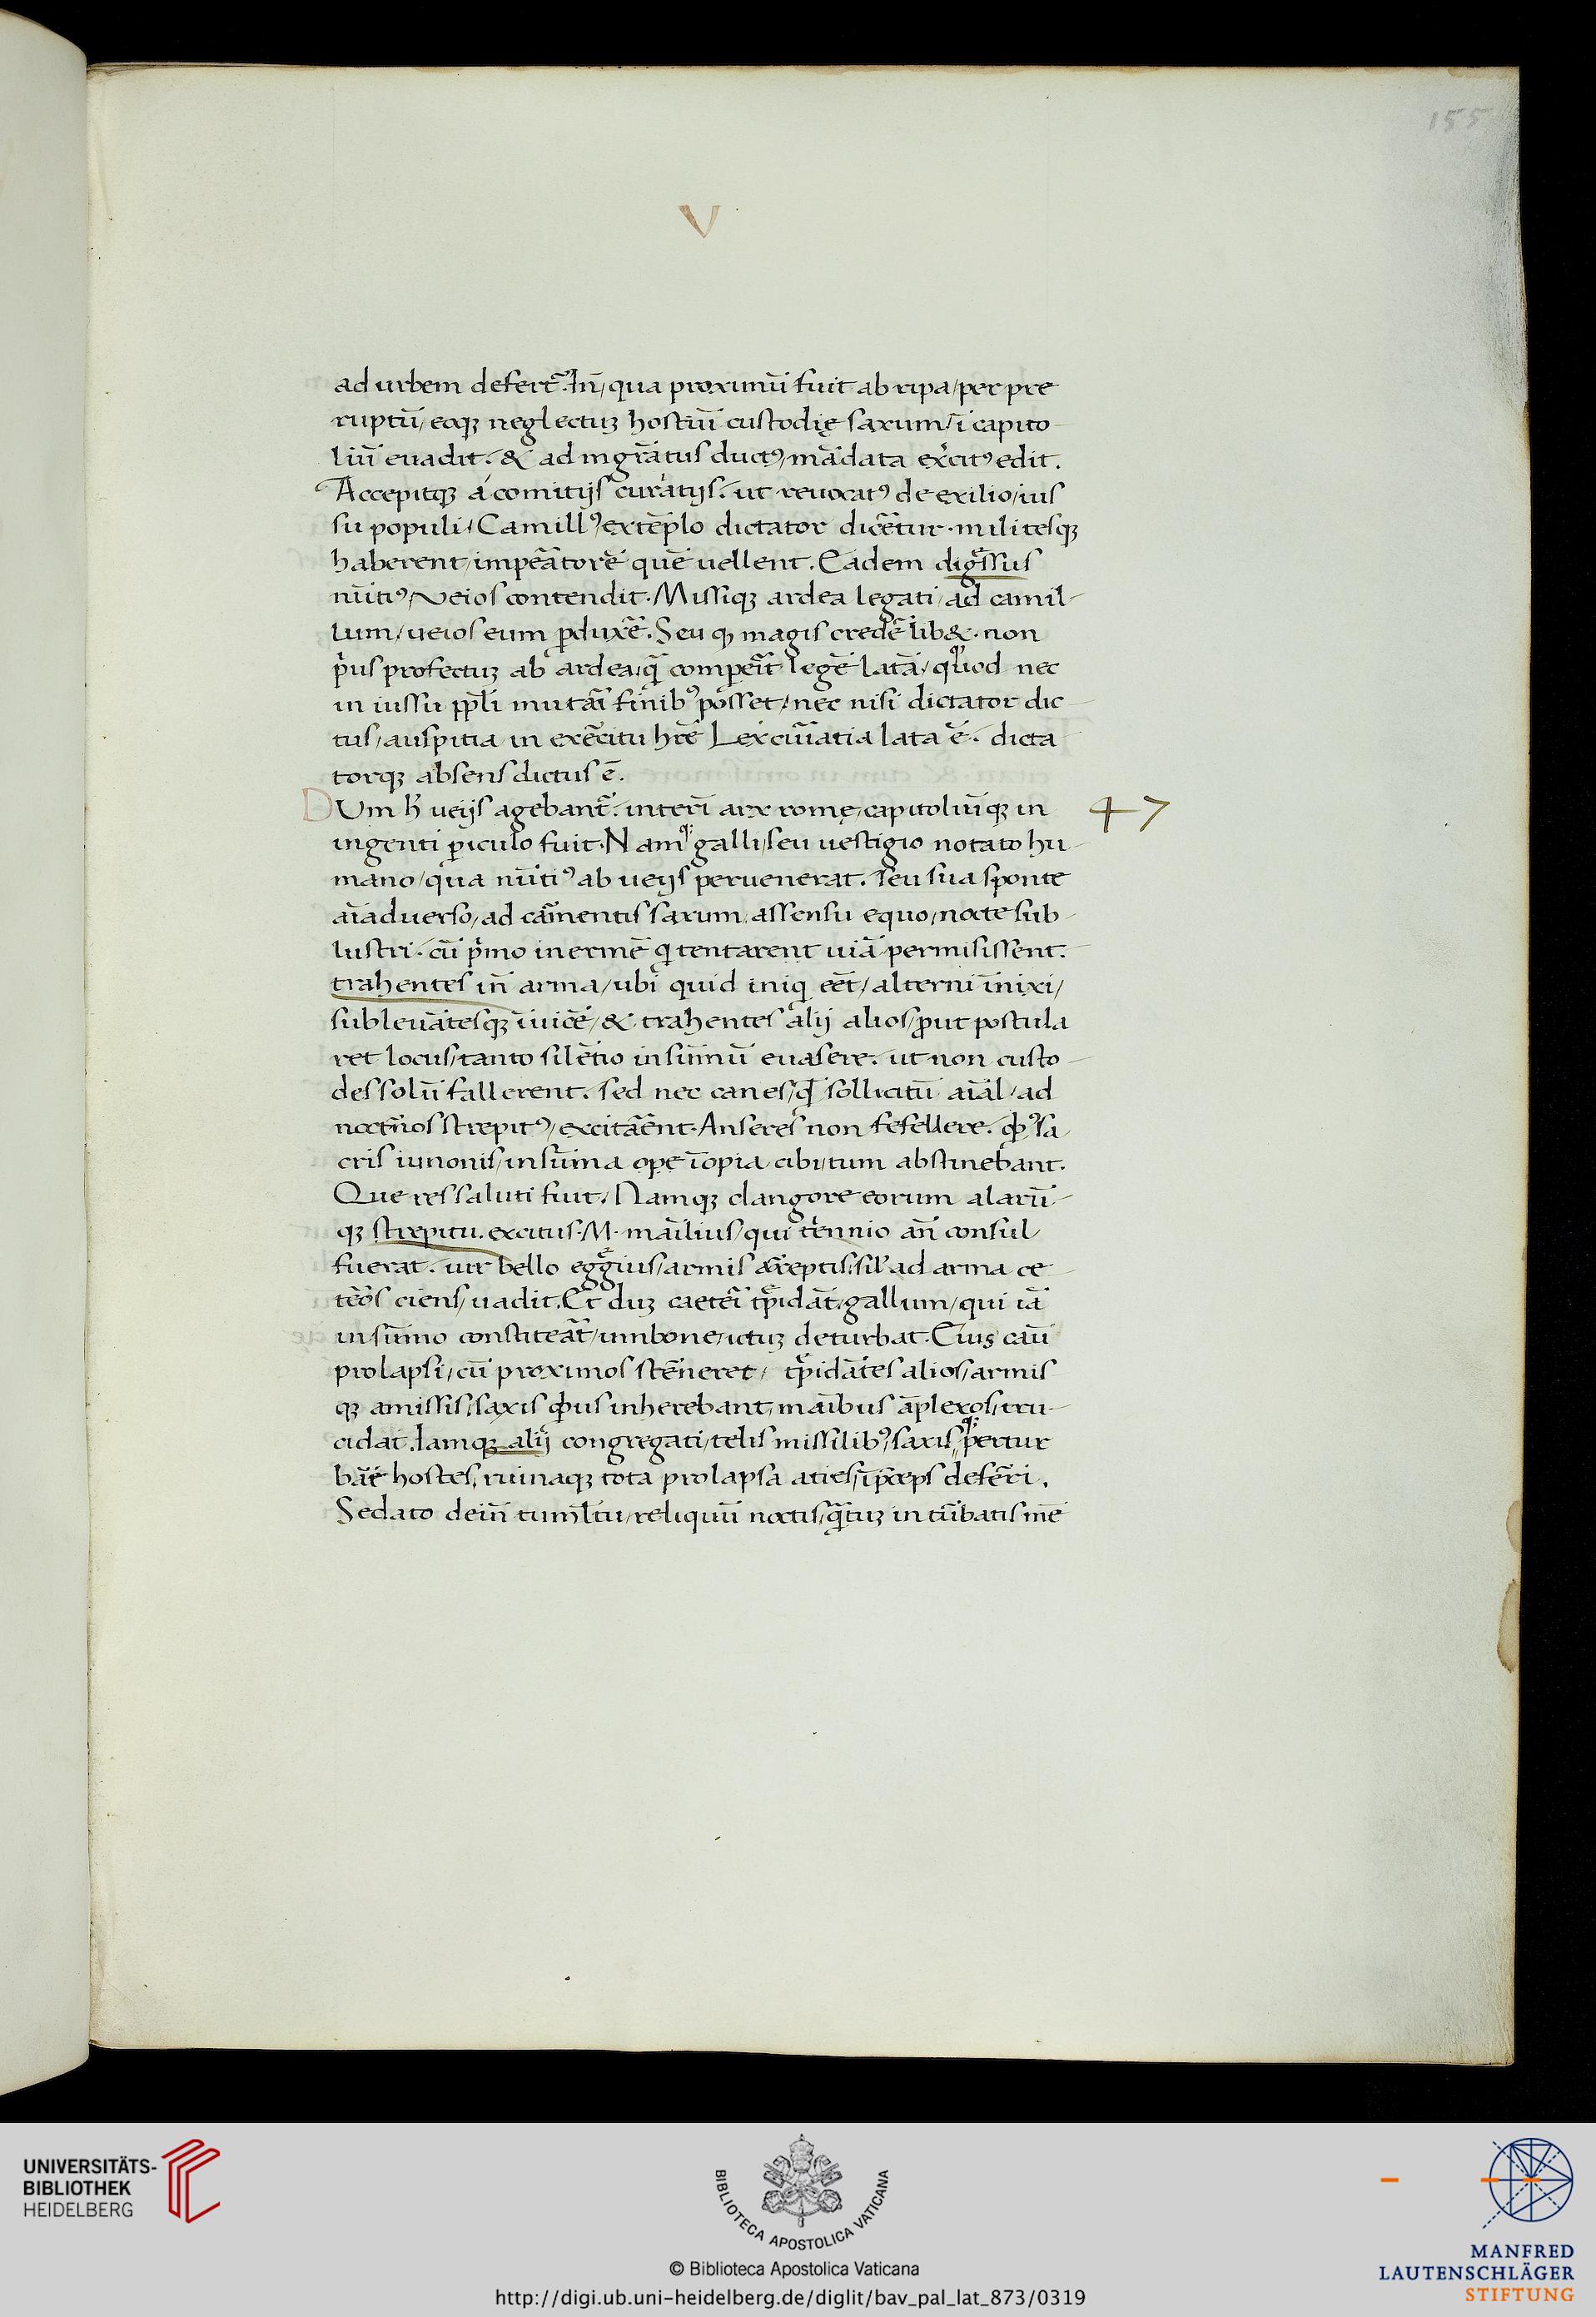 155
V
ad urbem defert᷑. Iñ/ qua proximũ fuit ab ripa/ per pre
ruptũ/ eoqȝ neglectuȝ hostiũ custodię saxum/ ĩ capito-
liũ euadit. & ad mgr̃atus ductꝰ/ mãdata ex̃citꝰ edit.
Accepitqȝ á comitijs curãtijs. ut reuocatꝰ de exilio/ ius
su populi/ Camillꝰ/ extẽplo dictator dicẽtur. militesqȝ
haberent/ impeãtorẽ quẽ uellent. Eadem digssus
nũtiꝰ/ veios contendit. Missiqȝ ardea legati/ ad camil-
lum/ ueios eum ꝑduxẽ. Seu ꝙ magis credẽ lib&. non
p̃us profectuȝ ab ardea/ q̃ compeĩt legẽ latã/ quod nec
in iussu ppl̃i mutãi finibꝰ posset/ nec nisi dictator dic-
tus/ auspitia in exẽcitu hr̃e Lex ciũiatia lata ẽ. dicta
torqȝ absens dictus ẽ.
DUm h̃ ueijs agebant᷑. interĩ arx romę/ capitoliũqȝ in
47
ingenti ꝑiculo fuit. Namqȝ galli/ seu uestigio notato hu-
mano/ qua nũtiꝰ ab ueijs peruenerat. seu sua sponte
aĩaduerso/ ad cãmentis saxum/ assensu equo/ nocte sub-
lustri. cũ p̃mo inermẽ qi tentarent uiã/ permisissent.
trahentes iñ arma/ ubi quid iniqi eẽt/ alterni ĩnixi/
subleuãtesqȝ ĩuicẽ/ & trahentes alij alios/ ꝓut postula
ret locus/ tanto silẽtio in sũmũ euasere. ut non custo-
des solũ fallerent. sed nec canes/ qd̃ sollicitũ aĩal/ ad
noctr̃nos strepitꝰ/ excitãent. Anseres non fefellere. qbꝰ sa
cris iunonis/ in sũma ope ĩopia cibi/ tum abstinebant.
Que res saluti fuit. Namqȝ clangore eorum alarũ-
qȝ strepitu. excitus. M. mãlius/ qui tr̃ennio añ consul/
fuerat. uir bello egg̃ius/ armis ar̃eptis/ sil̃ ad arma ce-
tẽos ciens/ uadit. Et duȝ caeteĩ tp̃idãt/ gallum/ qui iã
in sũmo constiteãt/ umbone/ ictuȝ deturbat. Cuis caũ
prolapsi/ cũ proximos stẽneret/ tp̃idãtes alios/ armis
qȝ amissis/ saxis qbus inherebant/ mãibus ãplexos/ tru-
cidat. Iamqȝ alij congregati/ telis missilibꝰ/ saxisqȝ pertur
bãe hostes/ ruinaqȝ tota prolapsa aties/ ĩ p̃ceps defẽri.
Sedato deiñ tuml̃tu/ reliquũ noctis/ q̃tuȝ in tũbatis mẽ
UNIVERSITÄTS-
BIBLIOTHEK
HEIDELBERG
BIBLIOTECA APOSTOLICA VATICANA
© Biblioteca Apostolica Vaticana
http://digi.ub.uni-heidelberg.de/diglit/bav_pal_lat_873/0319
MANFRED
LAUTENSCHLÄGER
STIFTUNG